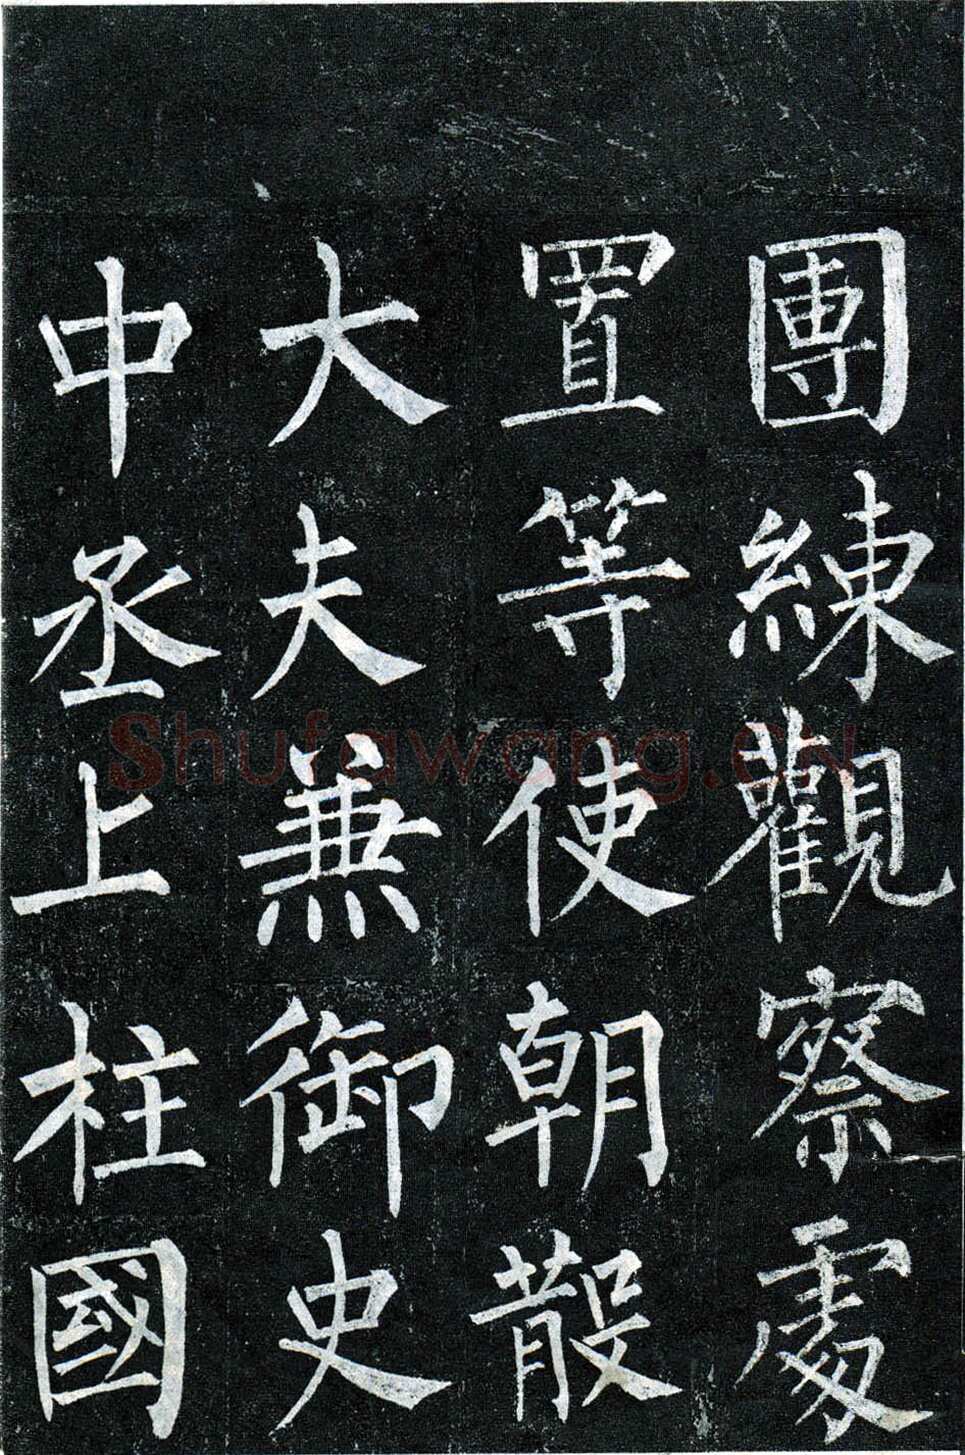 團練觀察處
置等使朝散
大夫兼御史
中丞上柱國
Shufawang.CN